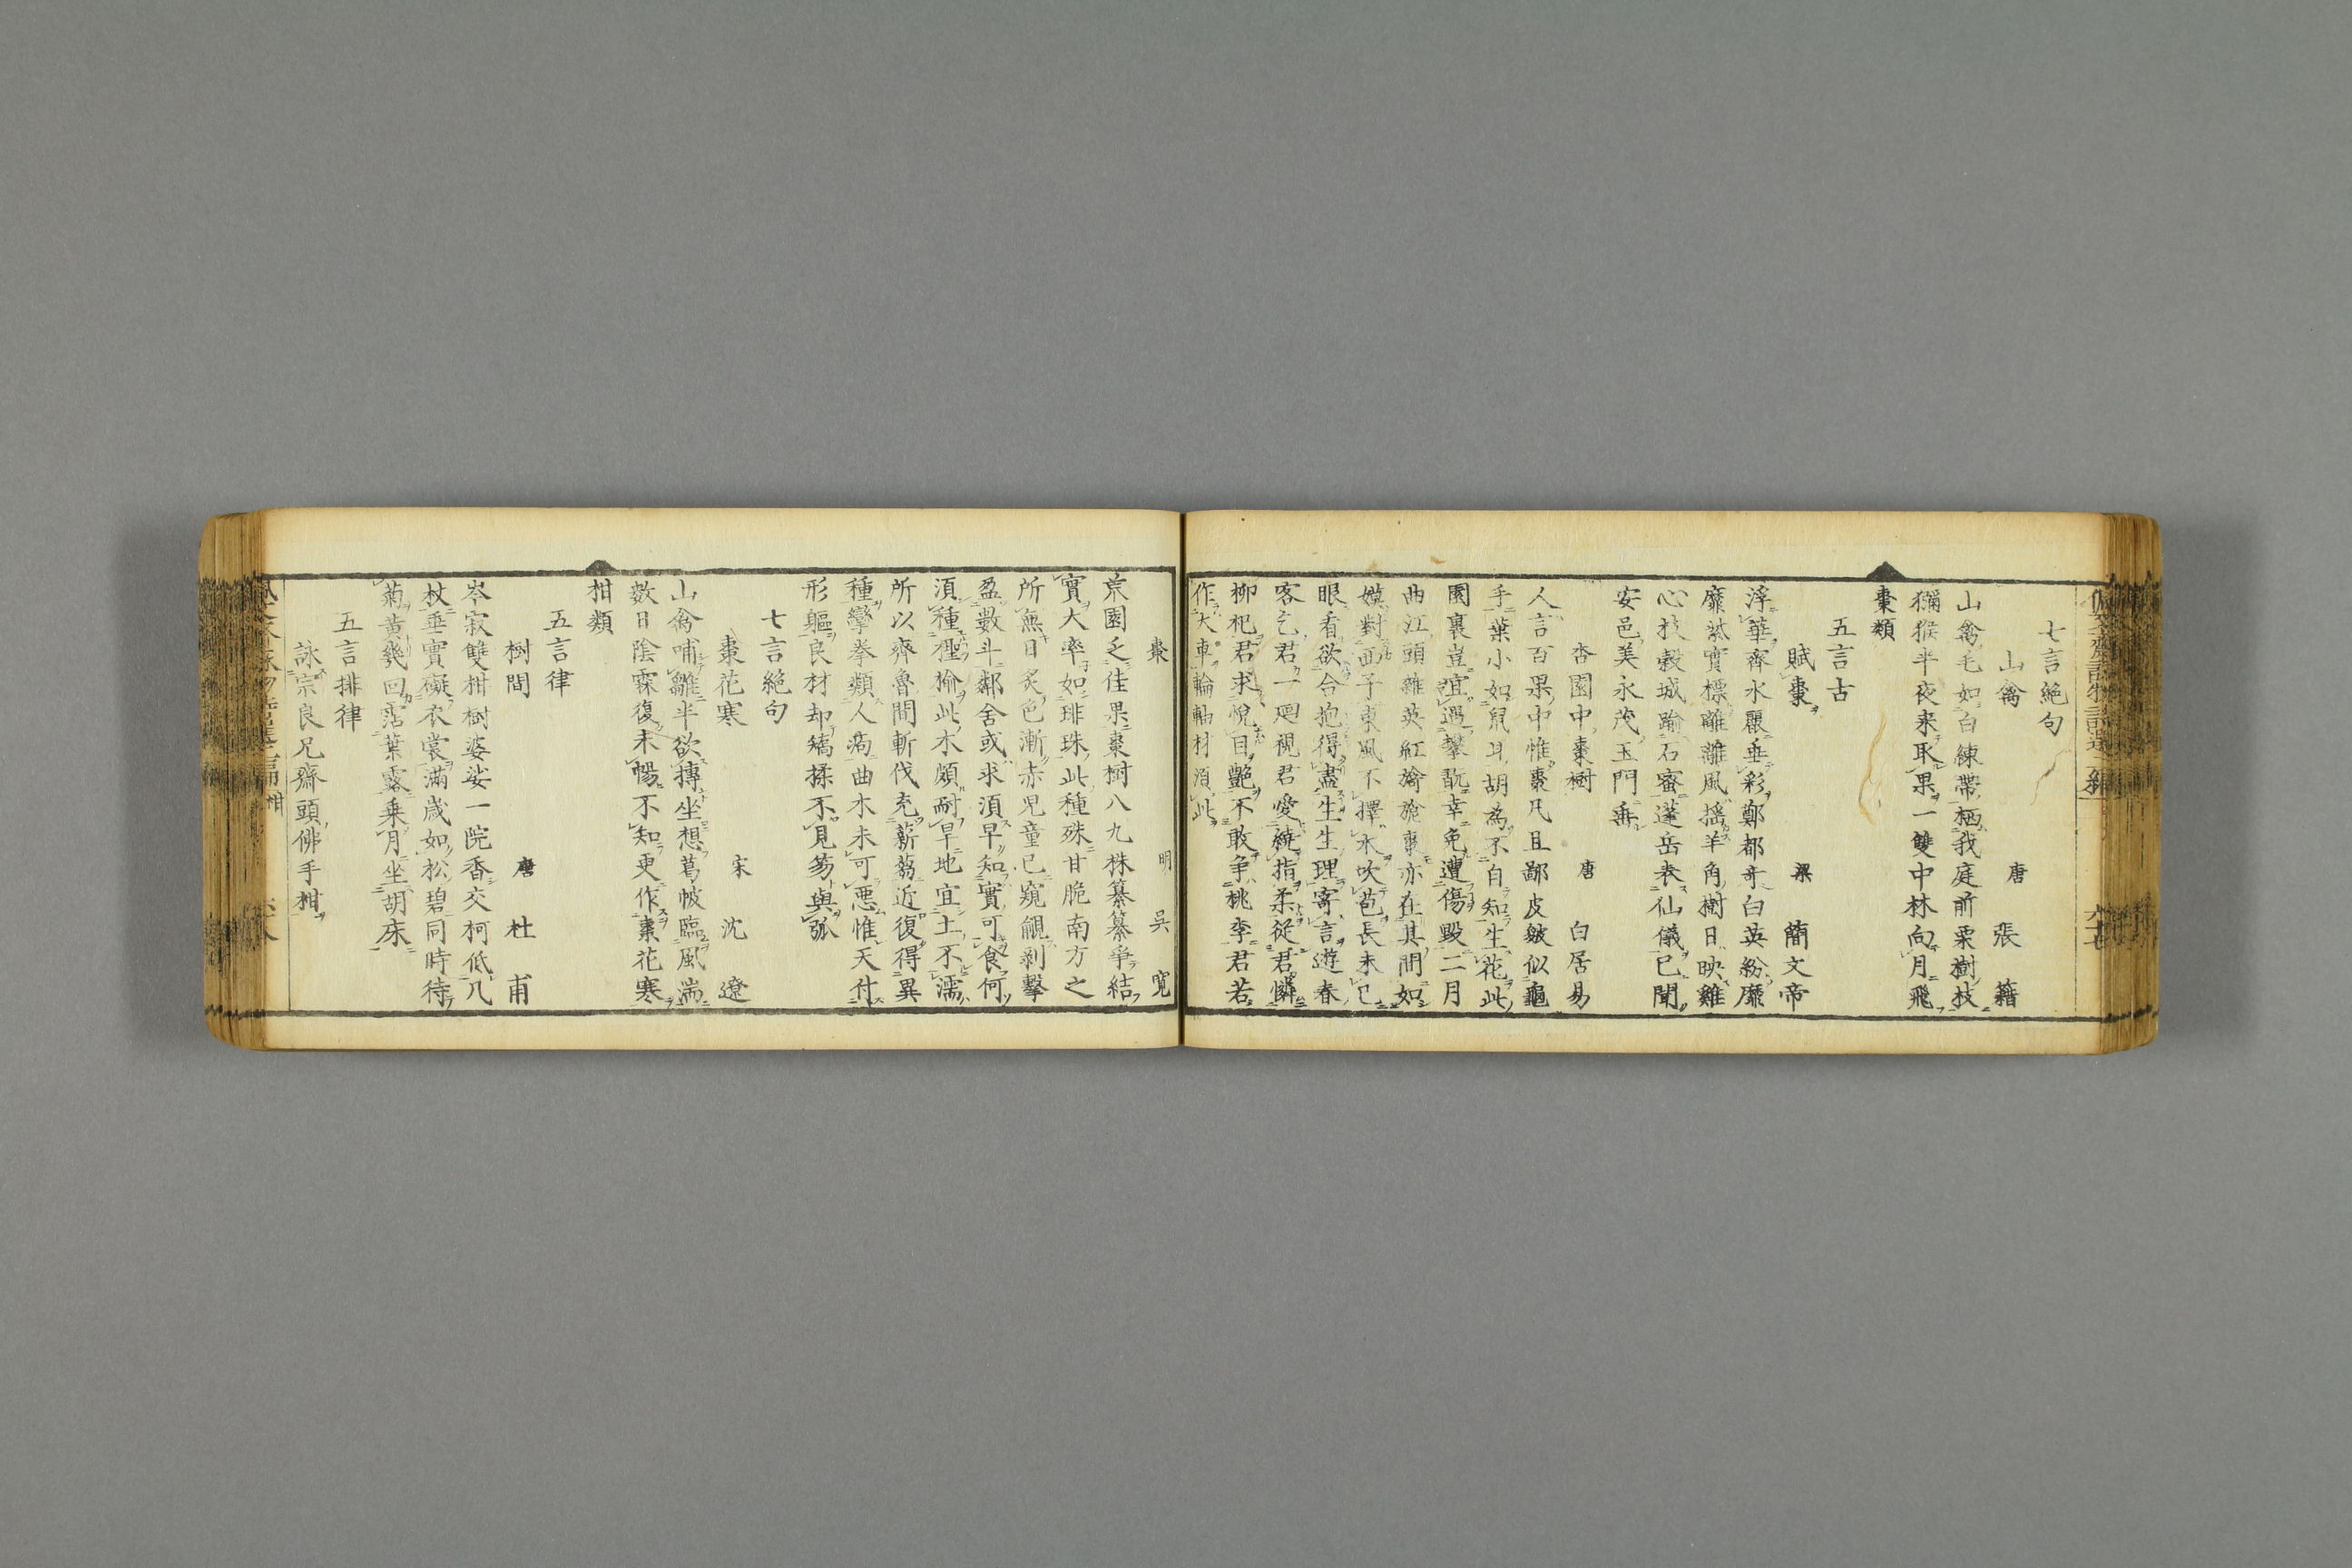 七言絶句
山禽 唐 張籍
山禽毛如白練帶栖我庭前栗樹枝
獼猴半夜来取果一雙中林向月飛
棗類
五言古
賦棗 梁 簡文帝
浮華齊水麗垂彩鄭都奇白英紛靡
靡紫實標離離風搖羊角樹日映雞
心枝穀城踰石蜜蓬岳表仙儀已聞
安邑美永茂玉門垂
杏園中棗樹 唐 白居易
人言百果中惟棗凡且鄙皮皴似龜
手葉小如鼠耳胡為不自知生花此
園裏豈宜遇攀翫幸免遭傷毀二月
曲江頭雜英紅旖旎棗亦在其間如
嫫對西子東風不擇木吹苞長未已
眼看欲合抱得盡生生理寄言遊春
客乞君一廻視君愛繞指柔從君憐
柳杞君求悅目艶不敢争桃李君若
作大車輪軸材須此
棗 明 吳寬
荒園乏佳果棗樹八九株纂纂爭結
實大率如琲珠此種殊甘脆南方之
所無日炙色漸赤児童已窺覦剥擊
盈數斗鄰舍或求須早知實可食何
須種檉榆此木頗耐旱地宜土不濡
所以齊魯間斬伐充薪蒭近復得異
種攣拳類人痀曲木未可悪惟天付
形軀良材却矯揉不見笏與弧
七言絶句
棗花寒 宋 沈遼
山禽哺雛半欲摶坐想葛帔臨風湍
數日陰霖復未暢不知更作棗花寒
柑類
五言律
樹間 唐 杜甫
岑寂雙柑樹婆娑一院香交柯低几
杖垂實礙衣裳滿歲如松碧同時待
菊黄幾回霑葉露乗月坐胡床
五言排律
詠宗良兄齋頭佛手柑